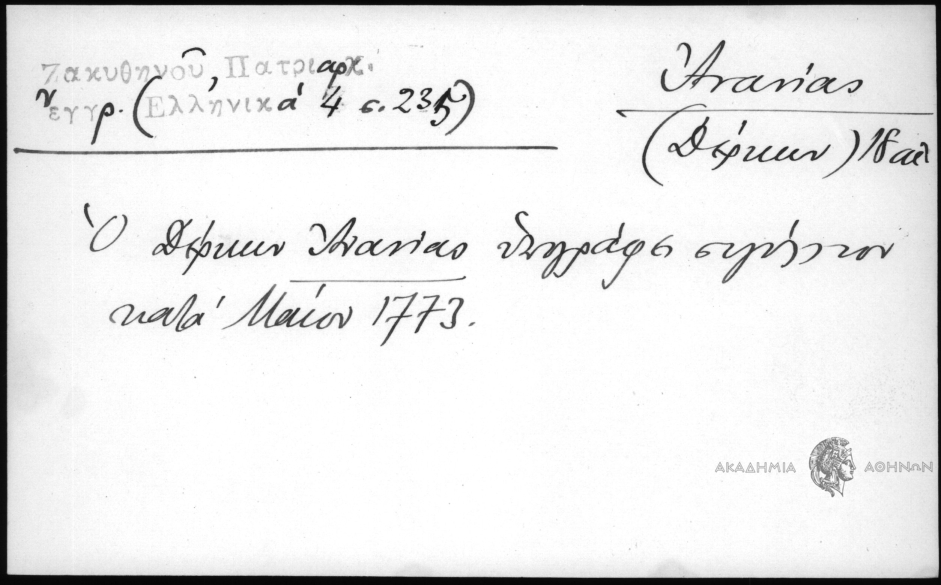 Ζακυθηνοῦ, Πατριαρχ.
ἔγγρ. (Ἑλληνικά 4 σ. 235)
Ἀνανίας
(Δέρκων) 18 αἰ
Ὁ Δέρκων Ἀνανίας ὑπογράφει σιγίλλιον
κατά Μάϊον 1773.
ΑΚΑΔΗΜΙΑ ΑΘΗΝΩΝ